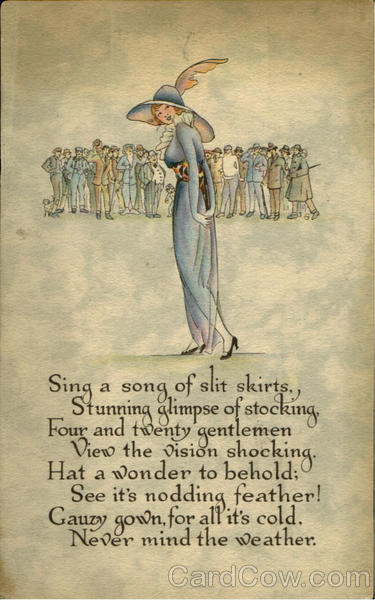 Sing a song of slit skirts,
Stunning glimpse of stocking,
Four and twenty gentlemen
View the vision shocking.
Hat a wonder to behold;
See it's nodding feather!
Gauzy gown, for all it's cold,
Never mind the weather.
CardCow.com